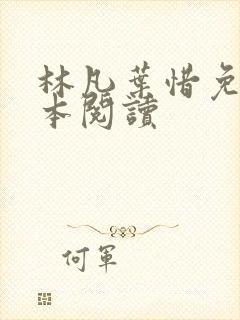 林凡葉惜免
本閱讀
何軍